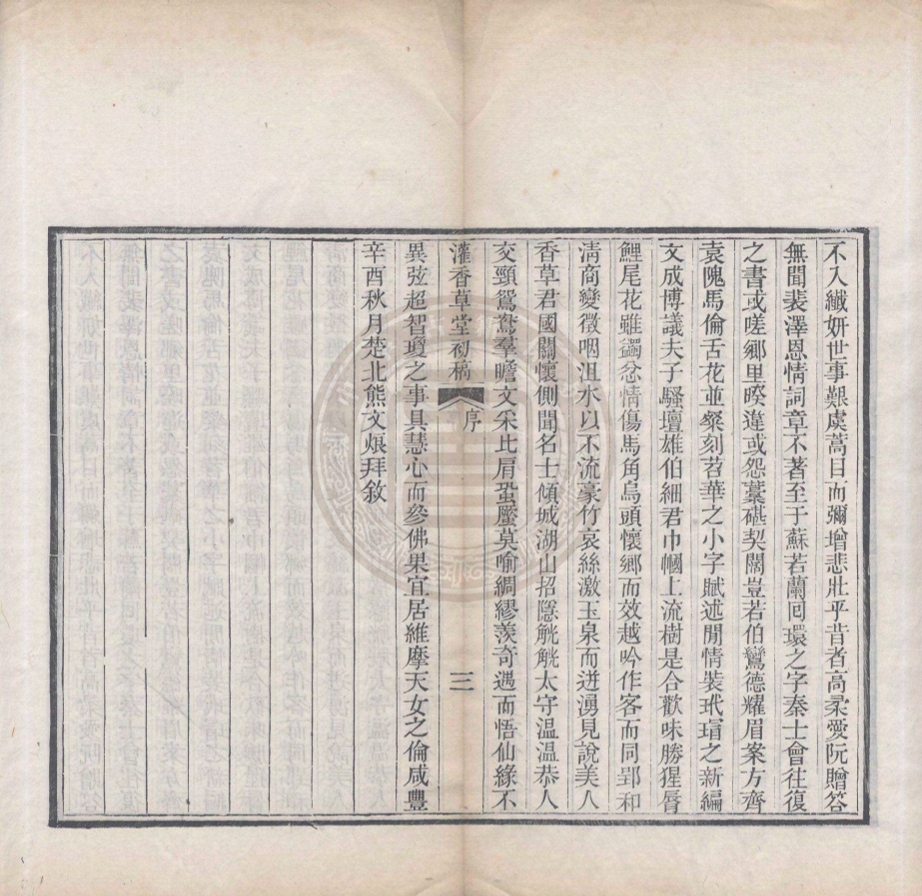 不入纖妍世事艱虞蒿目而彌增悲壯乎昔者高柔愛阮贈答
無聞裴澤恩情詞章不著至于蘇若蘭回環之字秦士會往復
之書或嗟鄉里暌違或怨藁碪契闊豈若伯鸞德耀眉案方齊
袁隗馬倫舌花並粲刻苕華之小字賦述閒情裝玳瑁之新編
文成博議夫子騷壇雄伯細君巾幗上流樹是合歡味勝猩脣
鯉尾花雖蠲忿情傷馬角烏頭懷鄉而效越吟作客而同郢和
淸商變徵咽沮水以不流豪竹哀絲激玉泉而迸湧見說美人
香草君國關懷側聞名士傾城湖山招隱觥觥太守温温恭人
交頸鴛鴦羣瞻文采比肩蛩蟨莫喻綢繆羨奇遇而悟仙緣不
灌香草堂初稿 序 三
異弦超智瓊之事具慧心而參佛果宜居維摩天女之倫咸豐
辛酉秋月楚北熊文烺拜敘